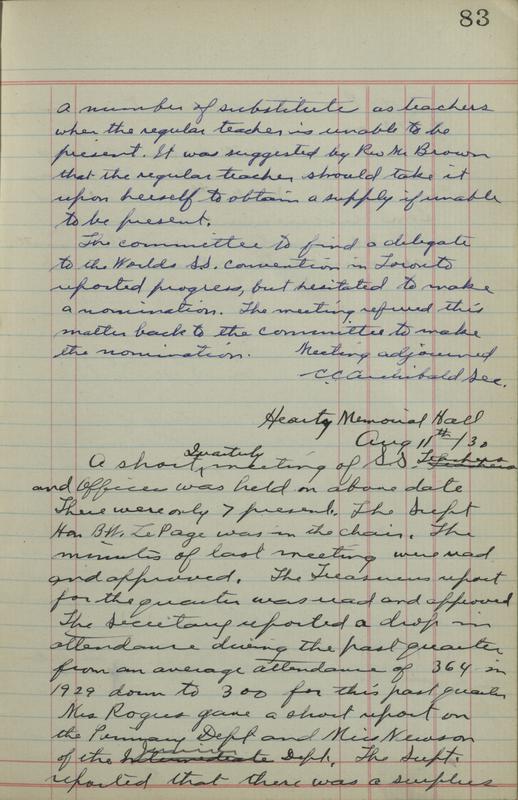 83
a number of substitute as teachers
when the regular teacher is unable to be
present. It was suggested by Rev Mr Brown
that the regular teacher should take it
upon herself to obtain a supply if unable
to be present.
The committee to find a delegate
to the Worlds S.S. convention in Toronto
reported progress, but hesitated to make
a nomination. The meeting refered this
matter back to the committee to make
the nomination. Meeting adjourned
C.C. Archibald Sec.
Heartz Memorial Hall
Aug 11th/30
A short Quarterly meeting of S.S. Teachers
and Officers was held on above date
There were only 7 present. The Supt
Hon B.W. LePage was in the chair. The
minutes of last meeting were read
and approved. The Treasurers report
for the quarter was read and approved
The Secretary reported a drop in
attendance during the past quarter
from an average attendance of 364 in
1929 down to 300 for this past quarter
Mrs Rogers gave a short report on
the Primary Dept and Miss Newson
of the Intermediate Junior Dept. The Supt.
reported that there was a surplus